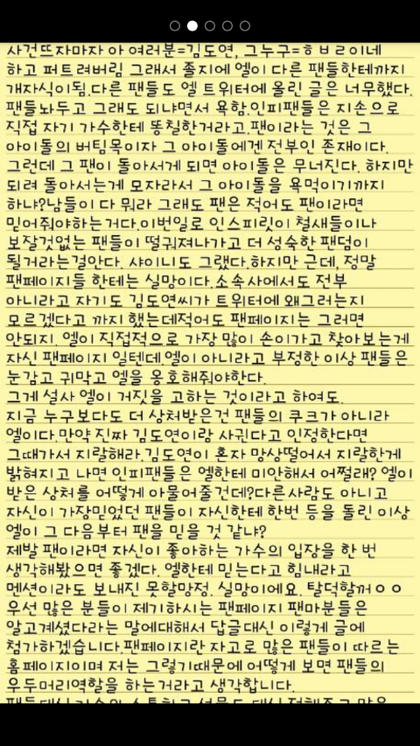 사건뜨자마자 아 여러분=김도연, 그누구=ㅎㅂㄹ이네
하고 퍼트려버림 그래서 졸지에 엘이 다른 팬들한테까지
개자식이됨.다른 팬들도 엘 트위터에 올린 글은 너무했다.
팬들놔두고 그래도 되냐면서 욕함.인피팬들은 지손으로
직접 자기 가수한테 똥칠한거라고.팬이라는 것은 그
아이돌의 버팀목이자 그 아이돌에겐 전부인 존재이다.
그런데 그 팬이 돌아서게 되면 아이돌은 무너진다. 하지만
되려 돌아서는게 모자라서 그 아이돌을 욕먹이기까지
하냐?남들이 다 뭐라 그래도 팬은 적어도 팬이라면
믿어줘야하는거다.이번일로 인스피릿이 철새들이나
보잘것없는 팬들이 떨궈져나가고 더 성숙한 팬덤이
될거라는걸안다. 샤이니도 그랬다.하지만 근데, 정말
팬페이지들 한테는 실망이다.소속사에서도 전부
아니라고 자기도 김도연씨가 트위터에 왜그러는지
모르겠다고 까지 했는데적어도 팬페이지는 그러면
안되지. 엘이 직접적으로 가장 많이 손이가고 찾아보는게
자신 팬페이지 일텐데.엘이 아니라고 부정한 이상 팬들은
눈감고 귀막고 엘을 옹호해줘야한다.
그게 설사 엘이 거짓을 고하는 것이라고 하여도.
지금 누구보다도 더 상처받은건 팬들의 쿠크가 아니라
엘이다.만약 진짜 김도연이랑 사귄다고 인정한다면
그때가서 지랄해라.김도연이 혼자 망상떨어서 지랄한게
밝혀지고 나면 인피팬들은 엘한테 미안해서 어쩔래? 엘이
받은 상처를 어떻게 아물어줄건데?다른사람도 아니고
자신이 가장믿었던 팬들이 자신한테 한번 등을 돌린 이상
엘이 그 다음부터 팬을 믿을 것 같냐?
제발 팬이라면 자신이 좋아하는 가수의 입장을 한 번
생각해봤으면 좋겠다. 엘한테 믿는다고 힘내라고
멘션이라도 보내진 못할망정. 실망이에요. 탈덕할꺼ㅇㅇ
우선 많은 분들이 제기하시는 팬페이지 팬마분들은
알고계셨다라는 말에대해서 답글대신 이렇게 글에
첨가하겠습니다.팬페이지란 자고로 많은 팬들이 따르는
홈페이지이며 저는 그렇기때문에 어떻게 보면 팬들의
우두머리역할을 하는거라고 생각합니다.